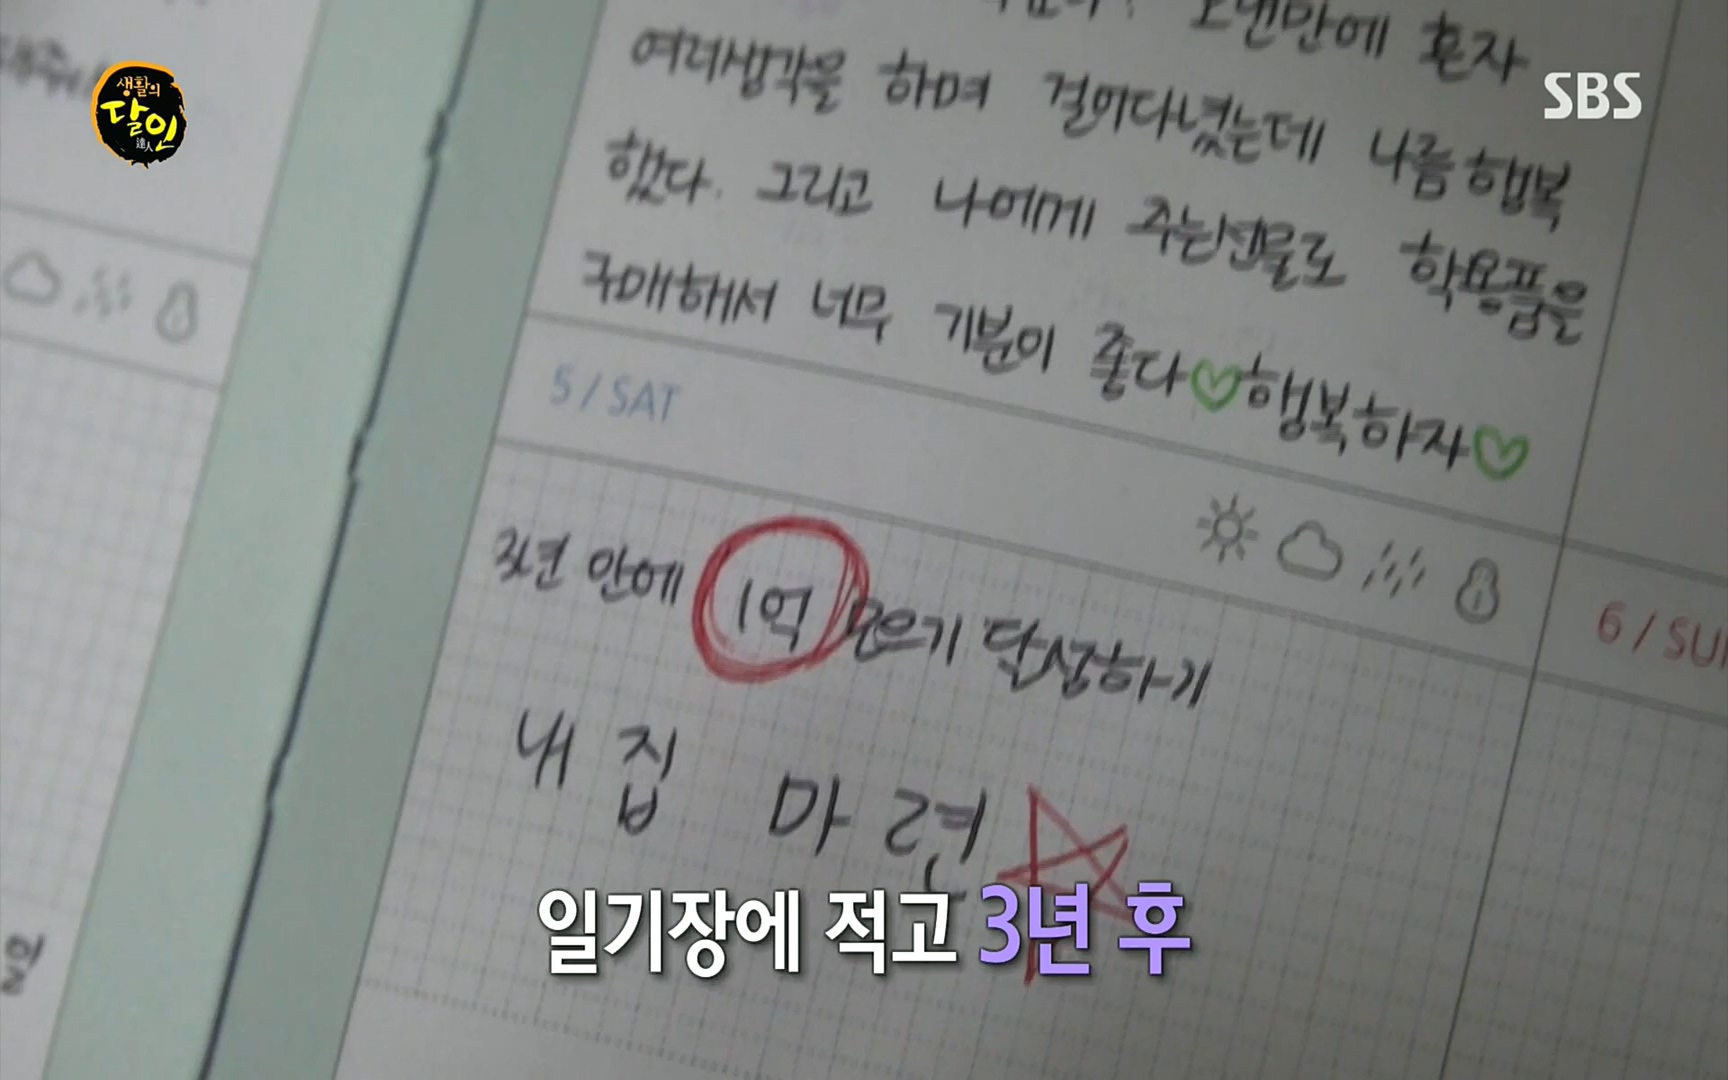 생활의
달인
達人
SBS
오랜만에 혼자
여러생각을 하며 걸어다녔는데 나름 행복
했다. 그리고 나에게 주는선물로 학용품을
구매해서 너무 기분이 좋다♡행복하자♡
5 / SAT
3년 안에 1억 모으기 달성하기
6 / SUN
내 집 마련
일기장에 적고 3년 후